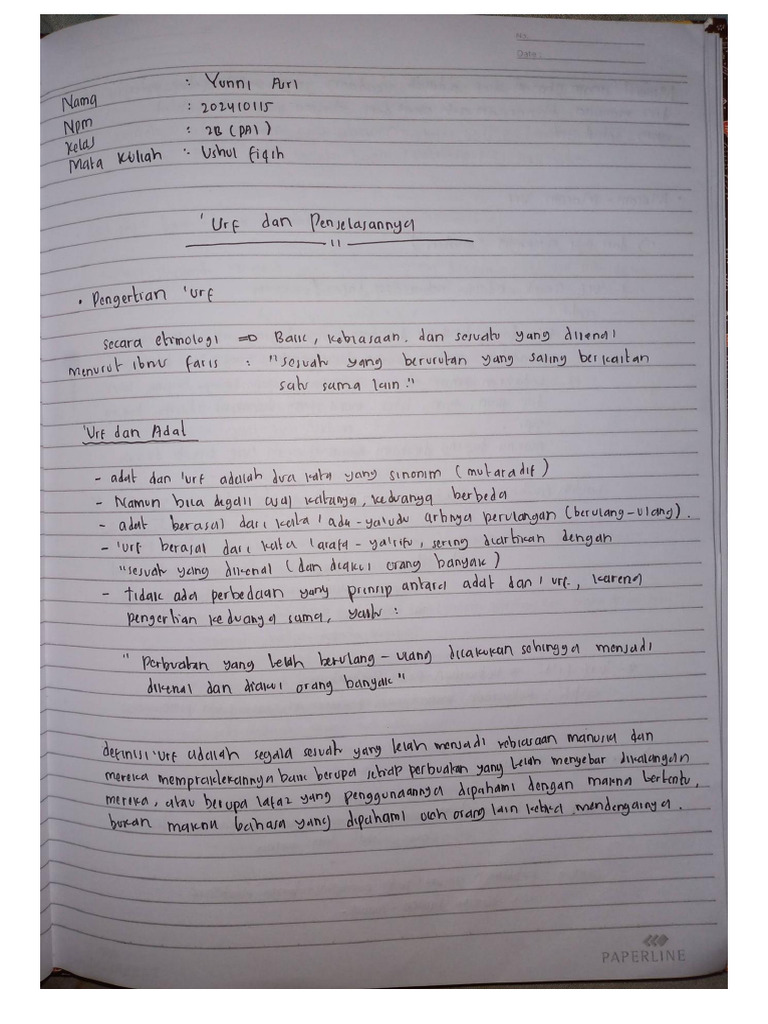 No.
Date :
Nama : Yunni Auri
Npm : 202410115
Kelas : 2B (PAI)
Mata Kuliah : Ushul Fiqih
'Urf dan Penjelasannya
• Pengertian 'urf
secara etimologi => Baik, kebiasaan, dan sesuatu yang dikenal
menurut ibnu faris : "sesuatu yang berurutan yang saling berkaitan
satu sama lain."
'Urf dan Adat
- adat dan 'urf adalah dua kata yang sinonim (mutaradif)
- Namun bila digali asal katanya, keduanya berbeda
- adat berasal dari kata 'ada-ya'udu artinya perulangan (berulang-ulang).
- 'urf berasal dari kata 'arafa-ya'rifu, sering diartikan dengan
"sesuatu yang dikenal (dan diakui orang banyak)
- tidak ada perbedaan yang prinsip antara adat dan 'urf, karena
pengertian keduanya sama, yaitu :
"Perbuatan yang telah berulang-ulang dilakukan sehingga menjadi
dikenal dan diakui orang banyak"
definisi 'urf adalah segala sesuatu yang telah menjadi kebiasaan manusia dan
mereka mempraktekannya baik berupa setiap perbuatan yang telah menyebar dikalangan
mereka, atau berupa lafaz yang penggunaannya dipahami dengan makna tertentu,
bukan makna bahasa yang dipahami oleh orang lain ketika mendengarnya.
PAPERLINE